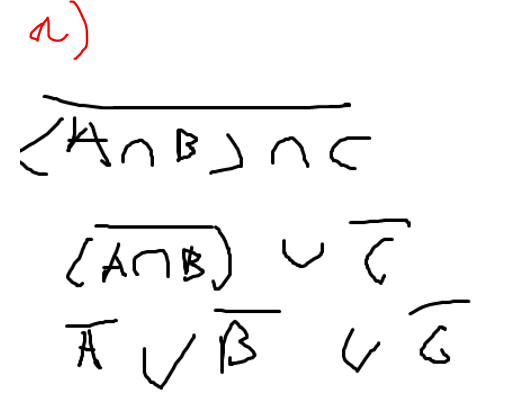 a)
$\overline{(A \cap B) \cap C}$
$(\overline{A \cap B}) \cup \overline{C}$
$\overline{A} \cup \overline{B} \cup \overline{C}$